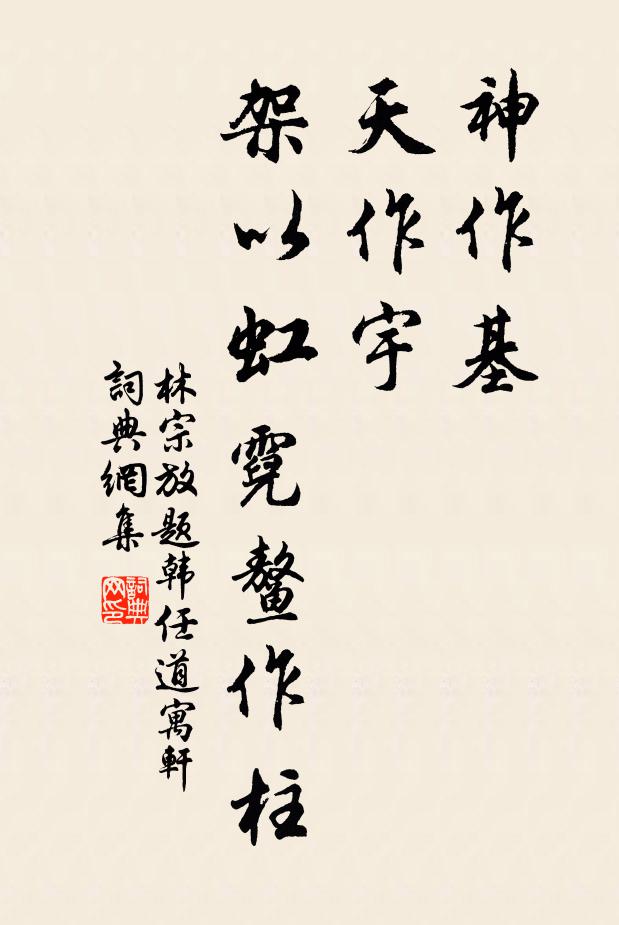 神作基
天作宇
架以虹霓鳌作柱
林宗放题韩任道寓軒
詞典網集
詞典网印